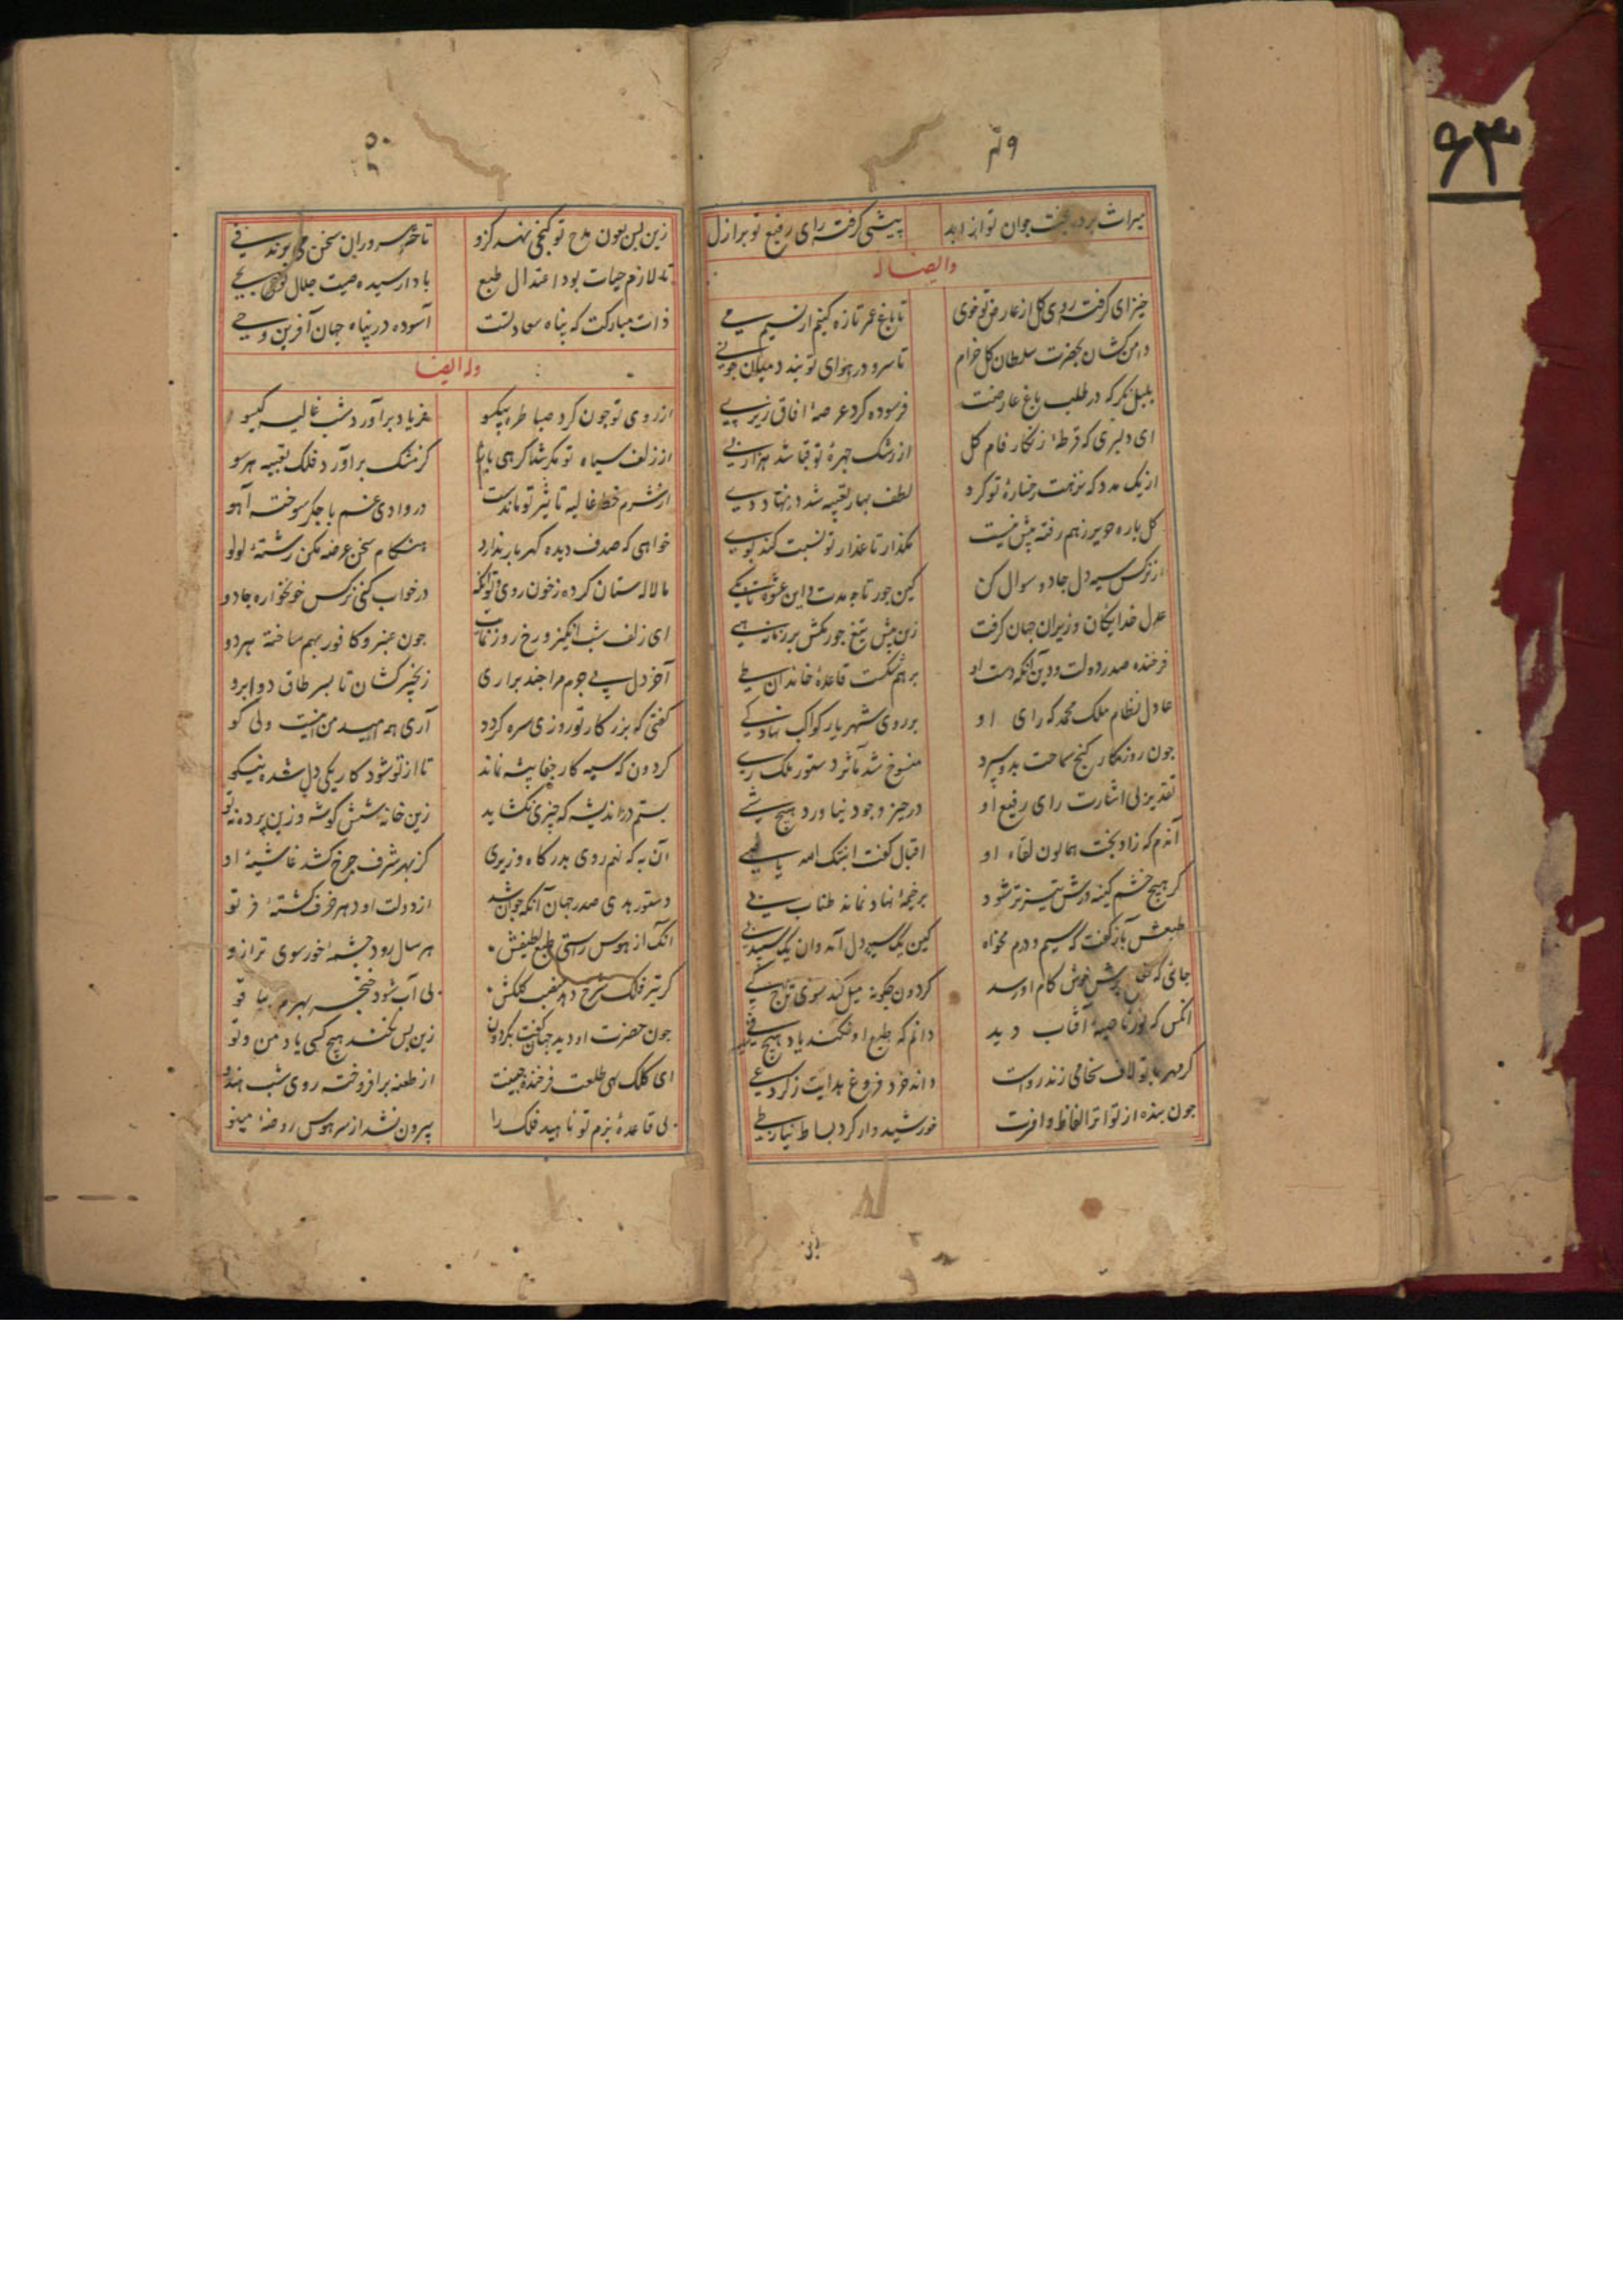 ۴۹
میراث برد بخت جوان تو از ابد پیشی گرفت رای رفیع تو بر ازل
وایضا له
خیز ای گرفت روی کل از عارض تو خوی تا باغ عمر تازه کنیم از نسیم می
دامن کشان بحضرت سلطان کل خرام تا سرو در هوای تو بندد میان جو نی
بلبل نکر که در طلب باغ عارضت فرسوده کرد عرصهٔ افاق زیر پی
ای دلبری که قرطهٔ زنکار فام کل از رشک چهرهٔ تو قبا شد هزار پی
از یک مدد که نزهت رخسارهٔ تو کرد لطف بهار تعبیه شد در نهاد دی
کل باره حریر زهم رفته پیش نیست مکذار تا عذار تو نسبت کند بوی
از نرکس سیه دل جادو سوال کن کین جور تا چه مدت و این عشوه تا بکی
عدل خدایکان وزیران جهان کرفت زین پیش تیغ جور مکش بر زمانه هی
فرخنده صدر دولت و دین آنکه دست او بر هم شکست قاعدهٔ خاندان طی
عادل نظام ملک محمد که رای او بر روی شهریار کواکب نهاد کی
جون روزکار کنج سماحت بدو سپرد منسوخ شد مآثر دستور ملک ری
تقدیر بی اشارت رای رفیع او در حیز وجود نیاورد هیچ شی
آندم که زاد بخت همایون لقاء او اقبال کفت انبتک الله یا
کر هیچ خشم کینه ورش تیزتر شود بر خیمهٔ نهاد نماند طناب پی
طبعش بآز کفت که سیم و درم مخواه کین یک سیه دل آمد وان یک سپید پی
جانی که پرش خوش کام او رسد کردون چکونه میل کند سوی تاج کی
انکس که نور ناصیهٔ آفتاب دید دانم که طبع او نکند یاد هیچ فی
کر مهر با تو لاف سخا می زند رواست داند خرد فروغ هدایت ز کرد غی
جون بنده از تواتر الفاظ وافرت خورشید وار کرد بساط نیاز طی
۵۰
زین بس بعون مدح تو کنجی نهد کزو تا حشر سروران سخن می برند فی
تا لازم حیات بود اعتدال طبع بادا رسیده صیت جلال تو
ذات مبارکت که پناه سعادتست آسوده در پناه جهان آفرین وحی
وله ایضا
از روی تو جون کرد صبا طره بیکسو فریاد برآورد شب غالیه کیسو
از زلف سیاه تو مکر شد کرهی باز کز مشک برآورد فلک تعبیه هر سو
از شرم خط غالیه تاثیر تو ماندست در وادی غم با جکر سوخته آهو
خواهی که صدف دیده کهربار ندارد هنکام سخن عرضه مکن رشتهٔ لولو
ما لاله ستان کرده ز خون روی و تو آنکه در خواب کنی نرکس خونخواره جادو
ای زلف شب انکیز و رخ روز نمایت جون عنبر و کافور بهم ساخته هر دو
آخر دل بی جرم مرا چند براری زنجیر کشان تا بسر طاق دو ابرو
کفتی که بزر کار تو روزی سره کردد آری همه امید من اینست ولی کو
کردون که سیه کار جفا پیشه نماند تا از تو شود کار یکی دل شده نیکو
بستم در اندیشه که چیزی نکشاید زین خانه شش کوشه و زین پرده نه تو
آن به که نهم روی بدرکاه وزیری کز بهر شرف چرخ کشد غاشیهٔ او
دستور هدی صدر جهان آنکه جوان شد از دولت او دهر خرف کشتهٔ فرتو
آنک از هوس راستی طبع لطیفش هر سال رود چشمهٔ خور سوی ترازو
کر تیر فلک شرح دهد نصب کلکش بی آب شود خنجر بهرام بیا قو
جون حضرت او دید جهان کفت بکردون زین پس نکند هیچ کسی یاد من و تو
ای کلک سهی طلعت فرخنده جبینت از طعنه برافروخته روی شب هندو
بی قاعدهٔ بزم تو ناهید فلک را بیرون نشد از سر هوس روضهٔ مینو
۶۳